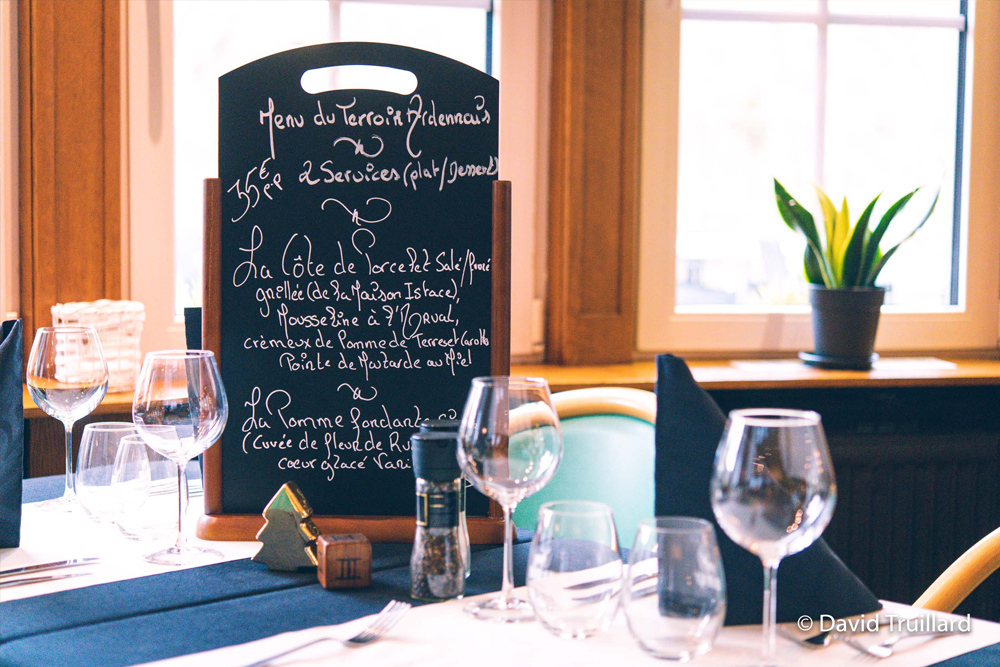 Menu du Terroir Ardennais
35€ pp
2 Services (plat/Dessert)
La Côte de Porcelet Salé/fumé
grillée (de la Maison Istace),
Mousseline à l'Orval,
crèmeux de Pomme de Terre et Carotte
Pointe de Moutarde au Miel
La Pomme fondante
(Cuvée de fleur de
coeur glacé
III
© David Truillard